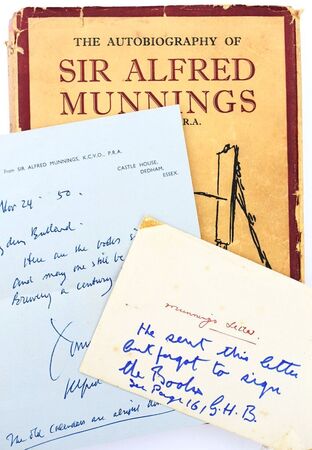 THE AUTOBIOGRAPHY OF
SIR ALFRED
MUNNINGS
R.A.
From SIR ALFRED MUNNINGS, K.C.V.O., P.R.A.
CASTLE HOUSE,
DEDHAM,
ESSEX.
Nov 24 . 50.
Here are the books
and may one still be
Brewery a century
Alfred
The old Calendars are almost
Munnings Letter.
He sent this letter
but forgot to sign
the Books
See Page 161, G.H.B.